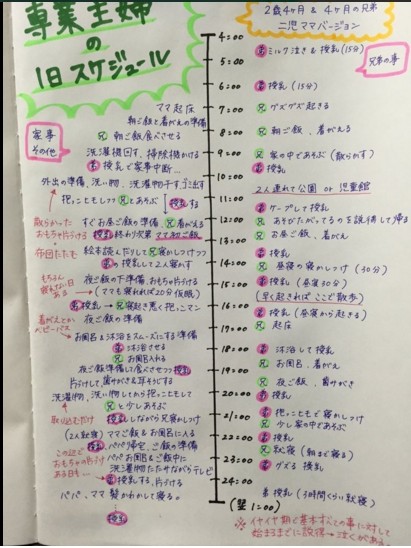 専業主婦
の
1日スケジュール
2歳4ヶ月 & 4ヶ月の兄弟
二児ママバージョン
家事
その他
兄弟の事
4:00
弟 ミルク泣き & 授乳(15分)
5:00
6:00
弟 授乳(15分)
ママ起床
7:00
兄 グズグズ起きる
朝ご飯と着がえの準備
8:00
兄 朝ご飯、着がえる
兄 朝ご飯食べさせる
洗濯機回す、掃除機かける
9:00
兄 家の中であそぶ(散らかす)
弟 授乳で家事中断…
10:00
弟 授乳
外出の準備、洗い物、洗濯物干す、ゴミ出す
2人連れて公園 or 児童館
抱っこもしつつ兄とあそぶ
授乳する
11:00
弟 ケープして授乳
散らかった
おもちゃ片づける
すぐお昼ご飯の準備、兄着がえる
12:00
兄 あそびたがってるのを説得して帰る
授乳終わり次第ママお昼ご飯
13:00
兄 お昼ご飯、着がえ
布団たたむ
絵本読んだりして兄寝かしつけつつ
弟の授乳して2人寝かす
14:00
弟 授乳
兄 昼寝の寝かしつけ(30分)
もちろん
寝れない日
ある
夜ご飯の下準備、おもちゃ片づける
(ママも寝れれば20分仮眠)
15:00
弟 授乳(昼寝30分)
(早く起きれば ここで散歩)
弟 授乳→兄寝起き悪く抱っこマン
16:00
弟 授乳(昼寝から起きる)
着がえとか
ベビーバス
夜ご飯の準備
17:00
兄 起床
お風呂&沐浴をスムーズにする準備
弟 沐浴させる
18:00
弟 沐浴して授乳
兄 お風呂入れる
19:00
兄 お風呂、着がえ
夜ご飯準備し食べさせつつ授乳
兄 夜ご飯、歯みがき
片づけして、歯みがき&耳そうじする
20:00
弟 授乳
洗濯物、洗い物しとから抱っこもして
兄と少しあそぶ
21:00
弟 抱っこもどで寝かしつけ
取り込むだけ
授乳しながら兄寝かしつけ
兄 少し家の中であそぶ
(2人就寝)ママご飯&お風呂に入る
22:00
弟 授乳
授乳、パパ帰宅、ご飯の準備
兄 就寝(朝まで寝る)
この辺で
おもちゃの片づけ
ある日も…
パパお風呂&ご飯中に
洗濯物たたみながらテレビ
23:00
弟 グズる 授乳
弟 授乳する、片づける
24:00
パパ、ママ 髪かわかして寝る。
(翌1:00)
弟 授乳(3時間くらい就寝)
授乳
※イヤイヤ期で基本すべての事に対して
始まるまでに説得→泣くがある